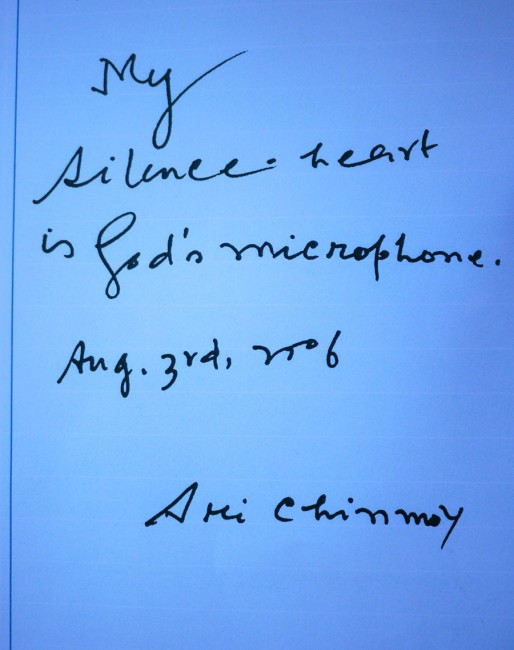 My
silence-heart
is God's microphone.
Aug. 3rd, 2006
Sri Chinmoy